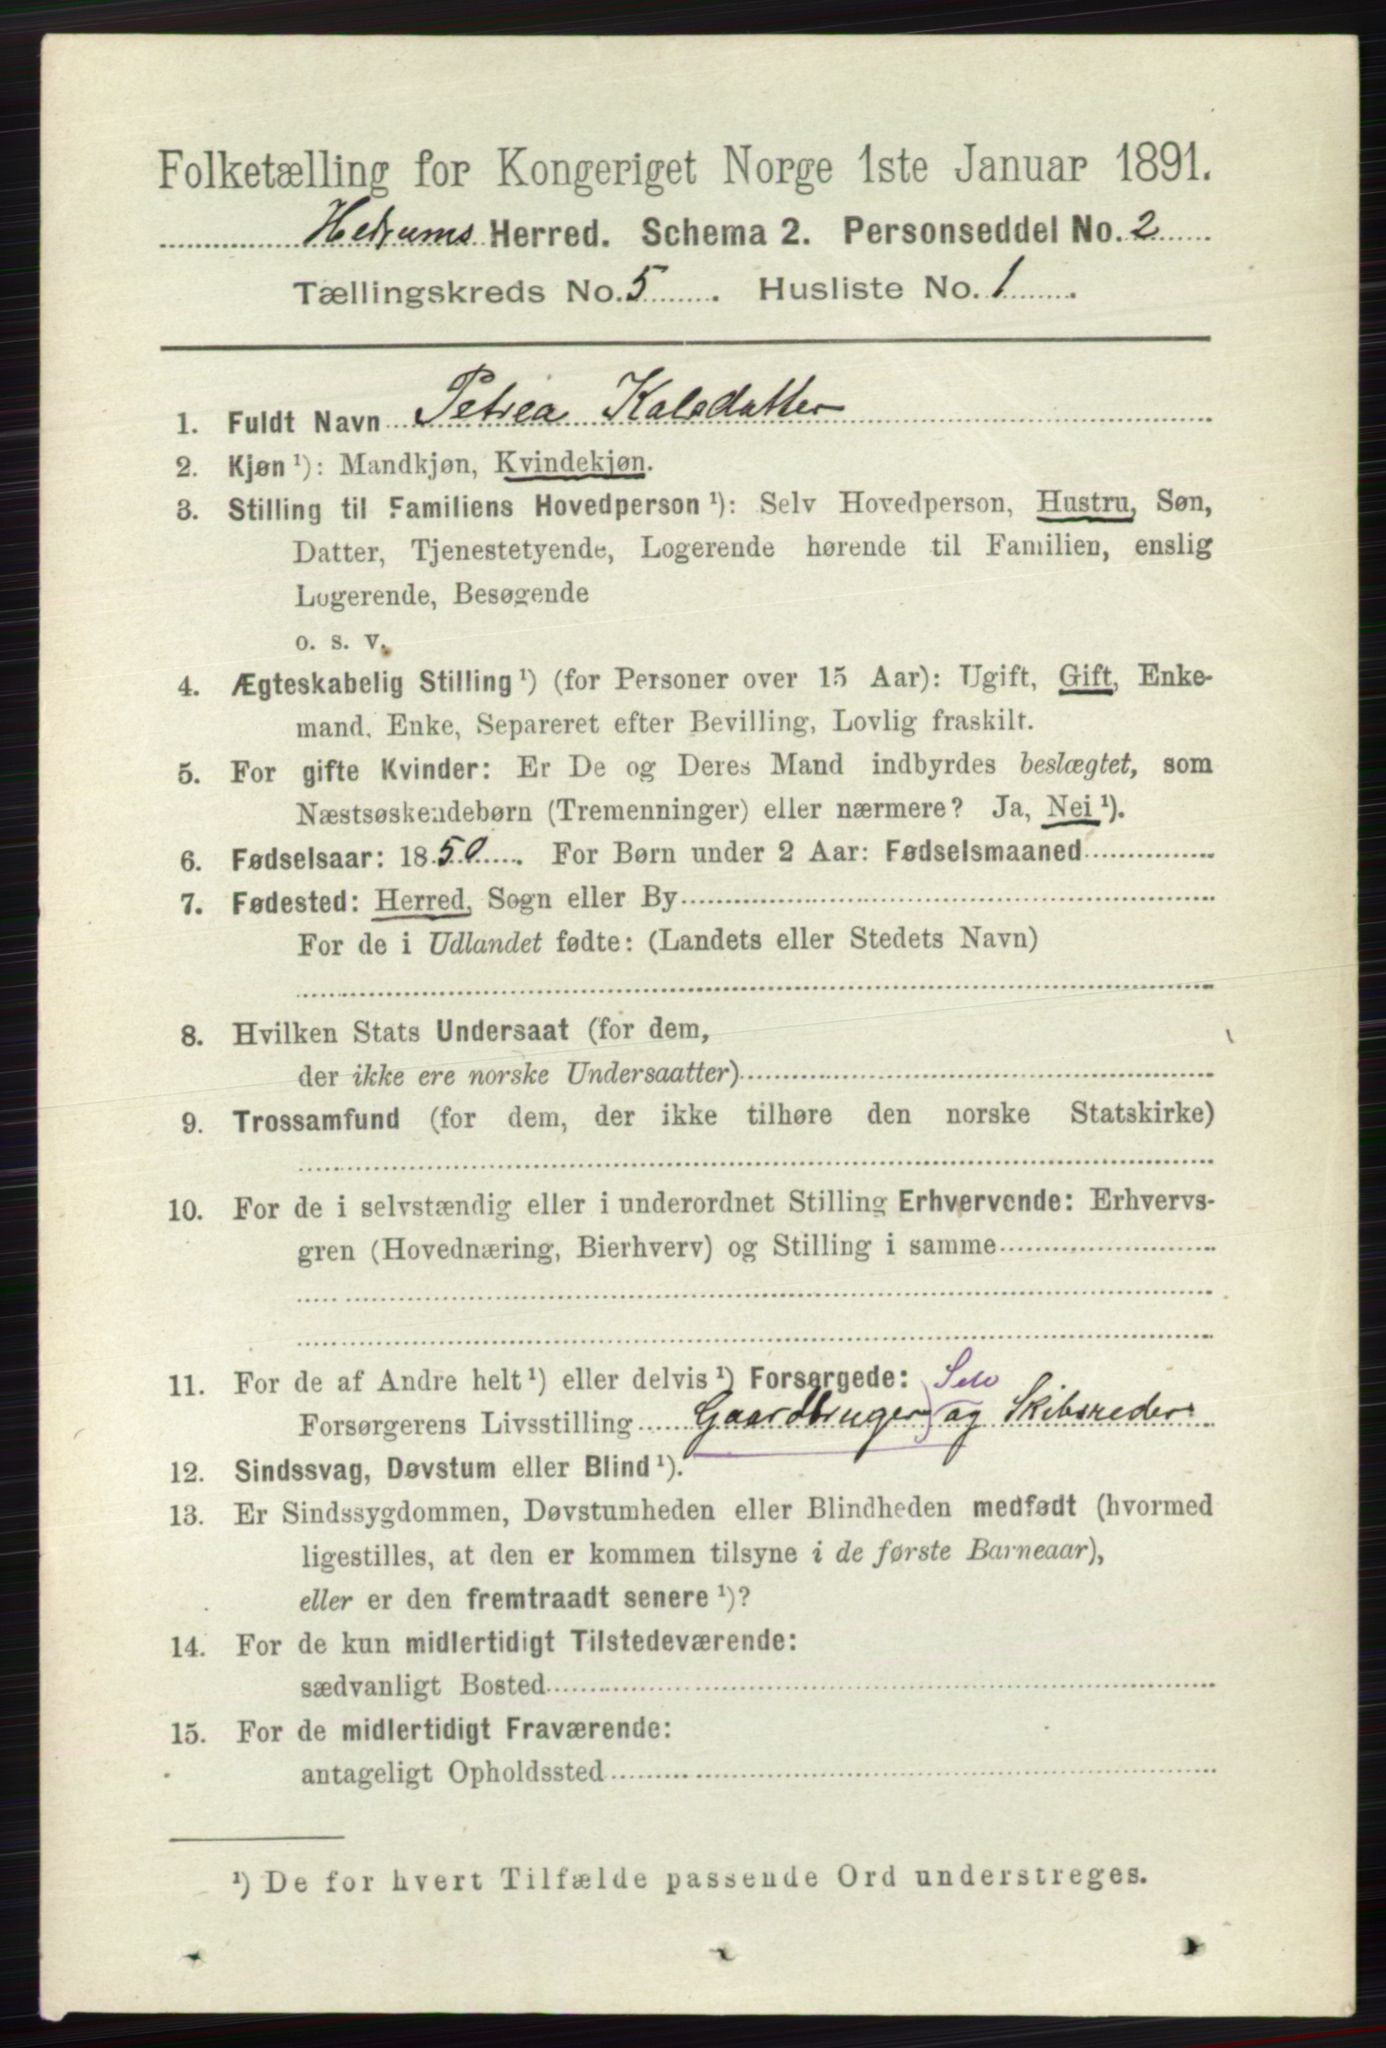 Folketælling for Kongeriget Norge 1ste Januar 1891.
Hedrums Herred. Schema 2. Personseddel No. 2
Tællingskreds No. 5. Husliste No. 1.
1. Fuldt Navn Petrea Kalsdatter
2. Kjøn ¹): Mandkjøn, Kvindekjøn.
3. Stilling til Familiens Hovedperson ¹): Selv Hovedperson, Hustru, Søn,
Datter, Tjenestetyende, Logerende hørende til Familien, enslig
Logerende, Besøgende
o. s. v.
4. Ægteskabelig Stilling ¹) (for Personer over 15 Aar): Ugift, Gift, Enke-
mand, Enke, Separeret efter Bevilling, Lovlig fraskilt.
5. For gifte Kvinder: Er De og Deres Mand indbyrdes beslægtet, som
Næstsøskendebørn (Tremenninger) eller nærmere? Ja, Nei ¹).
6. Fødselsaar: 1850. For Børn under 2 Aar: Fødselsmaaned
7. Fødested: Herred, Sogn eller By
For de i Udlandet fødte: (Landets eller Stedets Navn)
8. Hvilken Stats Undersaat (for dem,
der ikke ere norske Undersaatter)
9. Trossamfund (for dem, der ikke tilhøre den norske Statskirke)
10. For de i selvstændig eller i underordnet Stilling Erhvervende: Erhvervs-
gren (Hovednæring, Bierhverv) og Stilling i samme
11. For de af Andre helt ¹) eller delvis ¹) Forsørgede: Selv
Forsørgerens Livsstilling Gaardbruger) og Skibsreder
12. Sindssvag, Døvstum eller Blind ¹).
13. Er Sindssygdommen, Døvstumheden eller Blindheden medfødt (hvormed
ligestilles, at den er kommen tilsyne i de første Barneaar),
eller er den fremtraadt senere ¹)?
14. For de kun midlertidigt Tilstedeværende:
sædvanligt Bosted
15. For de midlertidigt Fraværende:
antageligt Opholdssted
¹) De for hvert Tilfælde passende Ord understreges.